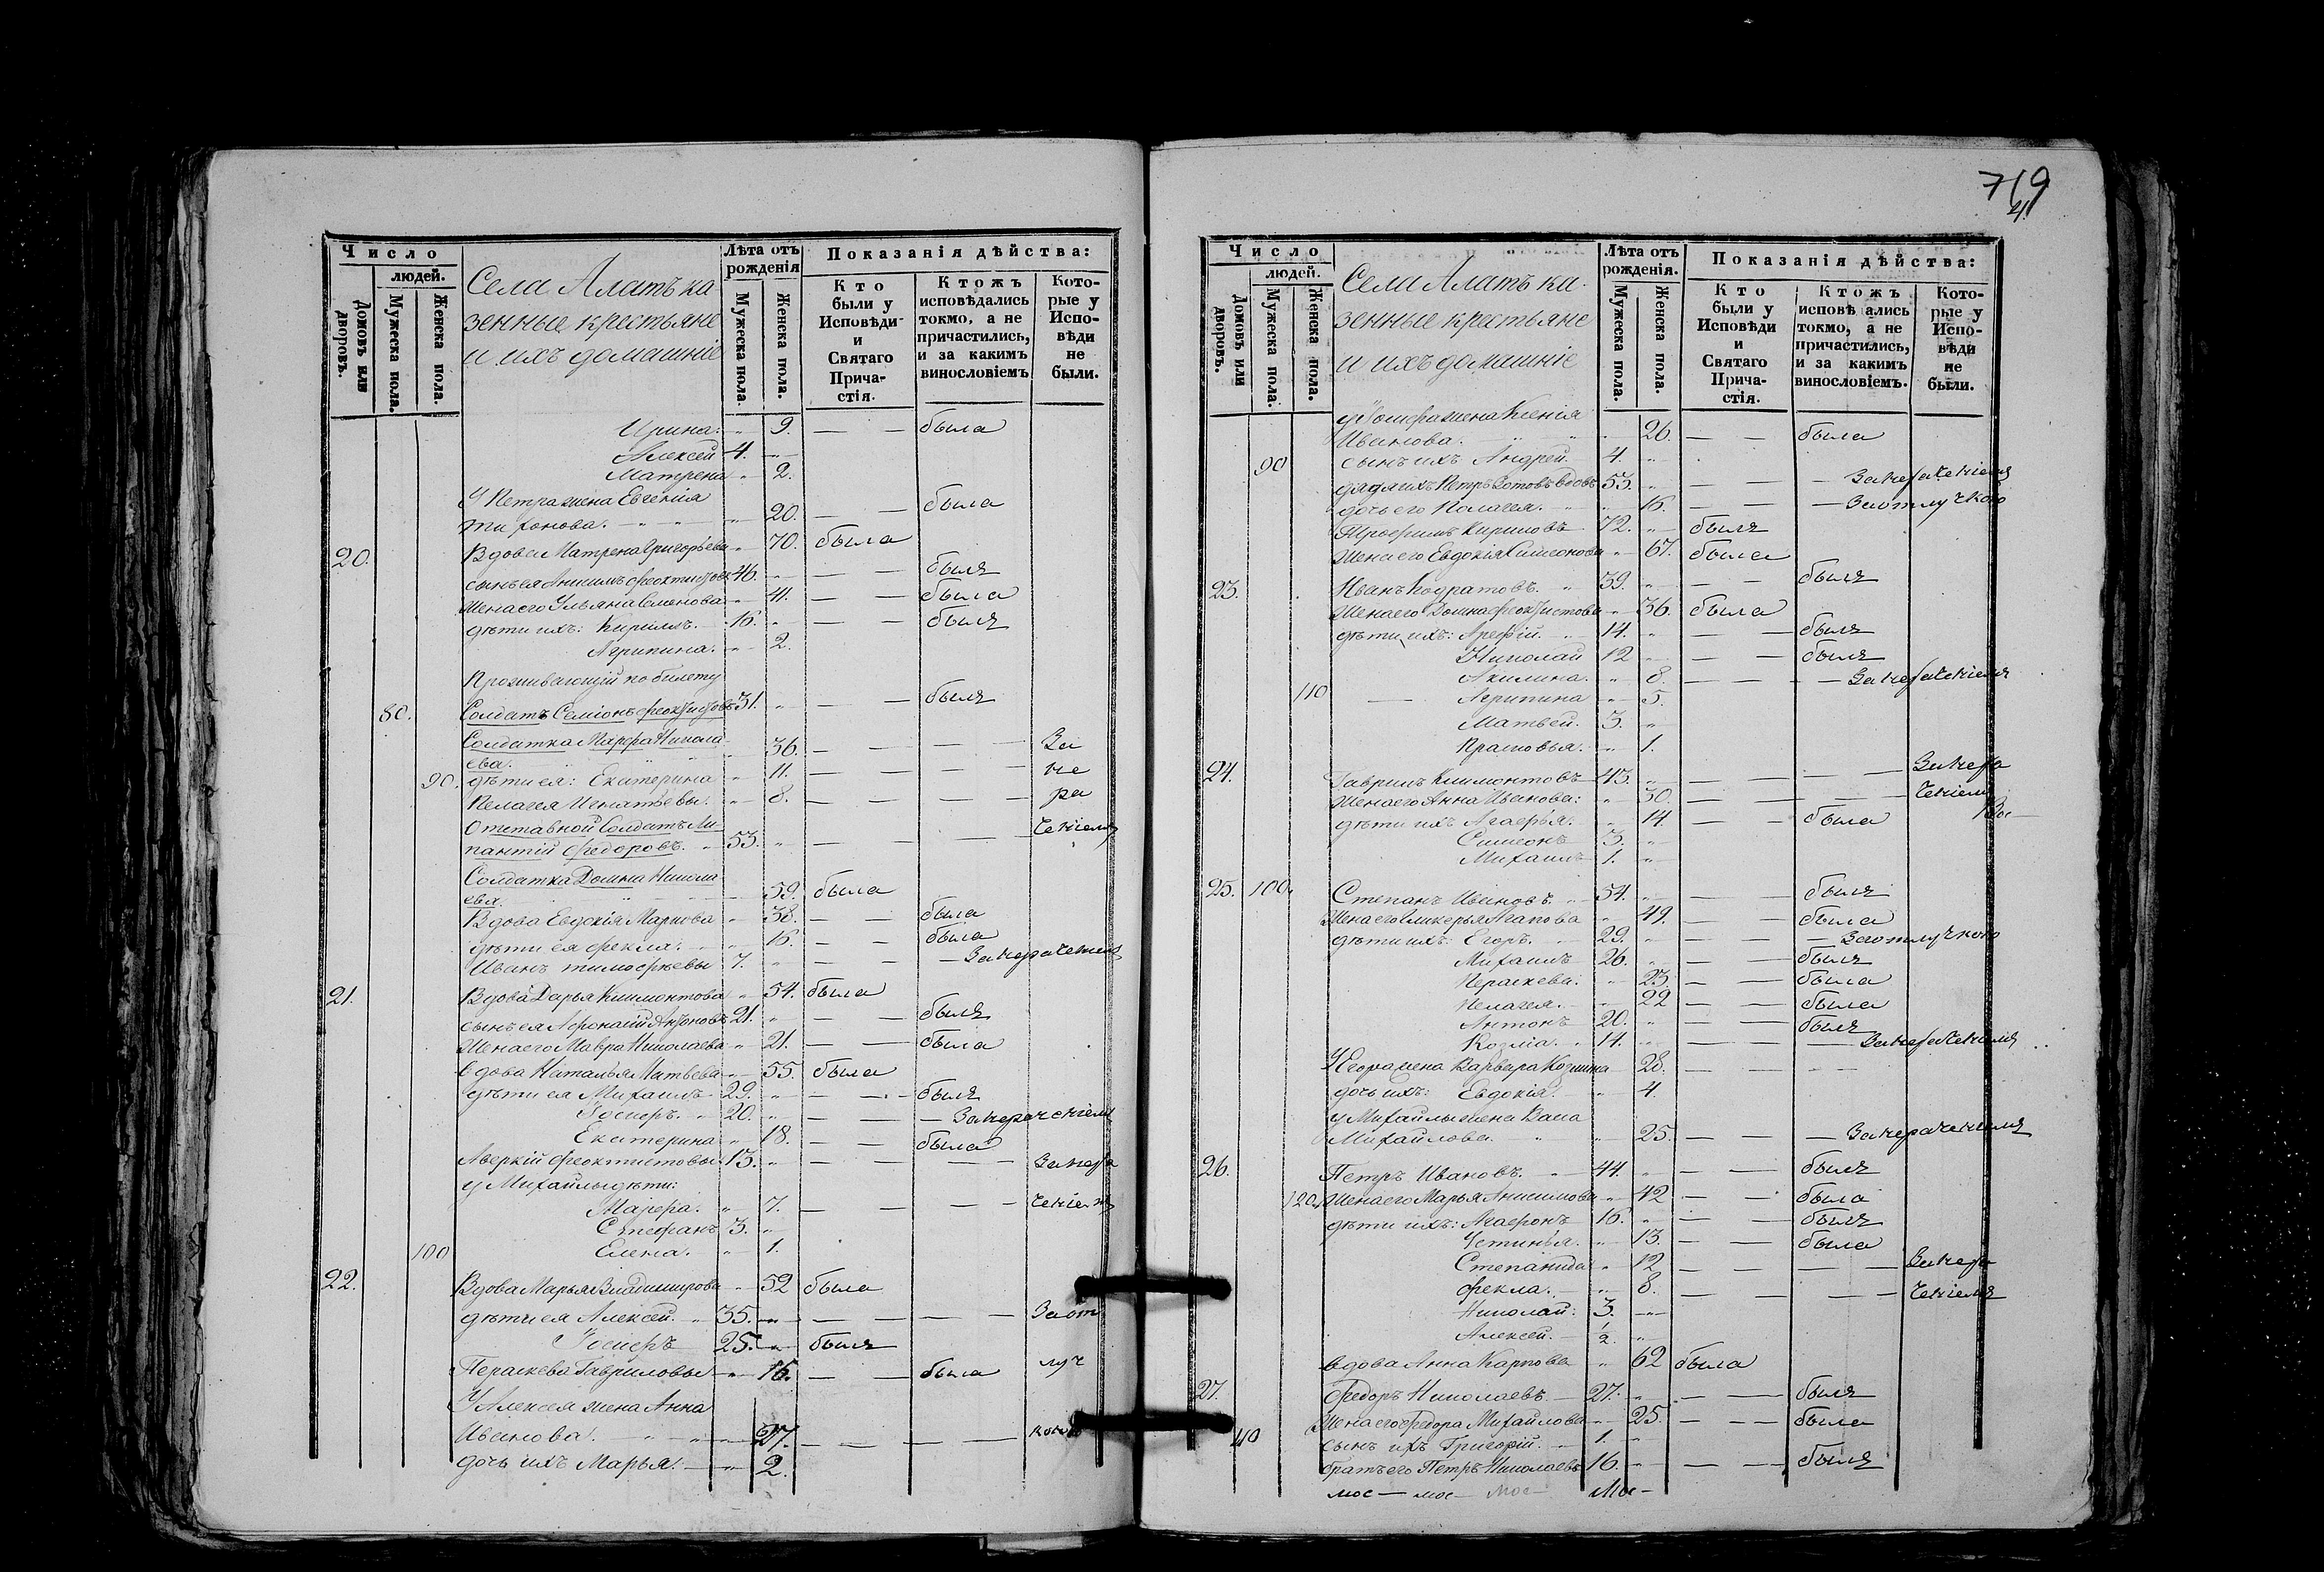 Число
людей.
Домовъ или дворовъ.
Мужеска пола.
Женска пола.
Села Алатъ ка
зенные крестьяне
и ихъ домашніе
Лѣта отъ рожденія
Мужеска пола.
Женска пола.
Показанія дѣйства:
Кто были у Исповѣди и Святаго Причастія.
Ктожъ исповѣдались токмо, а не причастились, и за какимъ винословіемъ
Которые у Исповѣди не были.
Ирина. " 9. — — была
Алексей 4. "
Матрена " 2.
У Петра жена Евгенія
Тифонова. " 20. — — была
20. Вдова Матрена Григорьева " 70. была
сынъ ея Анисимъ Феоктистовъ 46. " — — былъ
Жена его Ульяна Семенова " 41. — — была
дѣти ихъ: Кирилъ. 16. " — — былъ
Агрипина. " 2.
Проживающій по билету
80. Солдатъ Семіонъ Феоктистовъ 31. " — — былъ
Солдатка Марфа Никола
ева. " 36. — — — За
90. дѣти ея: Екатерина " 11. — — — не
Пелагея Игнатьевы. " 8. — — — ра
Отставной Солдатъ Ли
пантій Федоровъ. 53. " — — — ченіемъ
Солдатка Домна Никола
ева. " 59. была
Вдова Евдокія Маркова " 38. — — была
дѣти ея Фекла. " 16. — — была
Иванъ Тимофѣевы 7. " — — — За нераченіемъ
21. Вдова Дарья Климонтова " 54. была
сынъ ея Афонасій Антоновъ 21. " — — былъ
Жена его Мавра Николаева " 21. — — была
вдова Наталья Матвѣева " 55. была
дѣти ея Михаилъ 29. " — — былъ
Іосифъ. 20. " — — За нераченіемъ
Екатерина " 18. — — была
Аверкій Феоктистовы 13. " — — — За нера
у Михайлы дѣти:
Марфа. " 7. — — — ченіемъ
Стефанъ 3. "
100 Елена. " 1.
22. Вдова Марья Владимирова " 52 была
дѣти ея Алексей. 35. " — — — За от
Іосифъ 25. " былъ
Параскева Гавриловы " 16. — — была луч
У Алексея жена Анна
Иванова. " 27. — — — кою
дочь ихъ Марья. " 2.
719
Число
людей.
Домовъ или дворовъ.
Мужеска пола.
Женска пола.
Села Алатъ ка
зенные крестьяне
и ихъ домашніе
Лѣта отъ рожденія.
Мужеска пола.
Женска пола.
Показанія дѣйства:
Кто были у Исповѣди и Святаго Причастія.
Ктожъ исповѣ ались токмо, а не причастились, и за какимъ винословіемъ.
Которые у Исповѣди не были.
у Іосифа жена Ксенія
Иванова. " 26. — — была
90 сынъ ихъ Андрей. 4. "
дядя ихъ Петръ Зотовъ вдовъ 53. " — — За нераченіемъ
дочь его Пелагея. " 16. — — За отлучкою
Трофимъ Кириловъ 72. " былъ
Жена его Евдокія Симеонова " 67. была
23. Иванъ Кодратовъ. 39. " — — былъ
Жена его Домна Феоктистова " 36. была
дѣти ихъ: Арефій. 14. " — — былъ
Николай 12 " — — былъ
Акилина. " 8. — — — За нераченіемъ
110 Агрипина " 5.
Матвей. 3. "
Прасковья. " 1.
24. Гаврилъ Климонтовъ 43. " — — — За нера
Жена его Анна Иванова: " 30. — — — ченіемъ
дѣти ихъ Агафья. " 14. — — была
Симеонъ 3. "
Михаилъ 1. "
25. 100. Степанъ Ивановъ. 54. " — — былъ
Жена его Гликерья Агапова " 49. — — была
дѣти ихъ: Егоръ. 29. " — — За отлучкою
Михаилъ 26. " — — былъ
Параскева. " 23. — — была
Пелагея. " 22 — — была
Антонъ 20. " — — былъ
Козма. 14. " — — За нераченіемъ
У Егора жена Варвара Козмина " 28. — — — —
дочь ихъ: Евдокія. " 4.
у Михайлы жена Васа
Михайлова. " 25. — — За нераченіемъ
26. Петръ Ивановъ. 44. " — — былъ
120. Жена его Марья Анисимова " 42 — — была
дѣти ихъ: Агафонъ 16. " — — былъ
Устинья. " 13. — — была
Степанида " 12 — — — За нера
Фекла. " 8. — — — ченіемъ
Николай: 3. "
Алексей. ½. "
вдова Анна Карпова " 62 была
27. Федоръ Николаевъ 27. " — — былъ
Жена его Федора Михайлова " 25. — — была
110 сынъ ихъ Григорій. 1. "
братъ его Петръ Николаевъ 16. " — — былъ